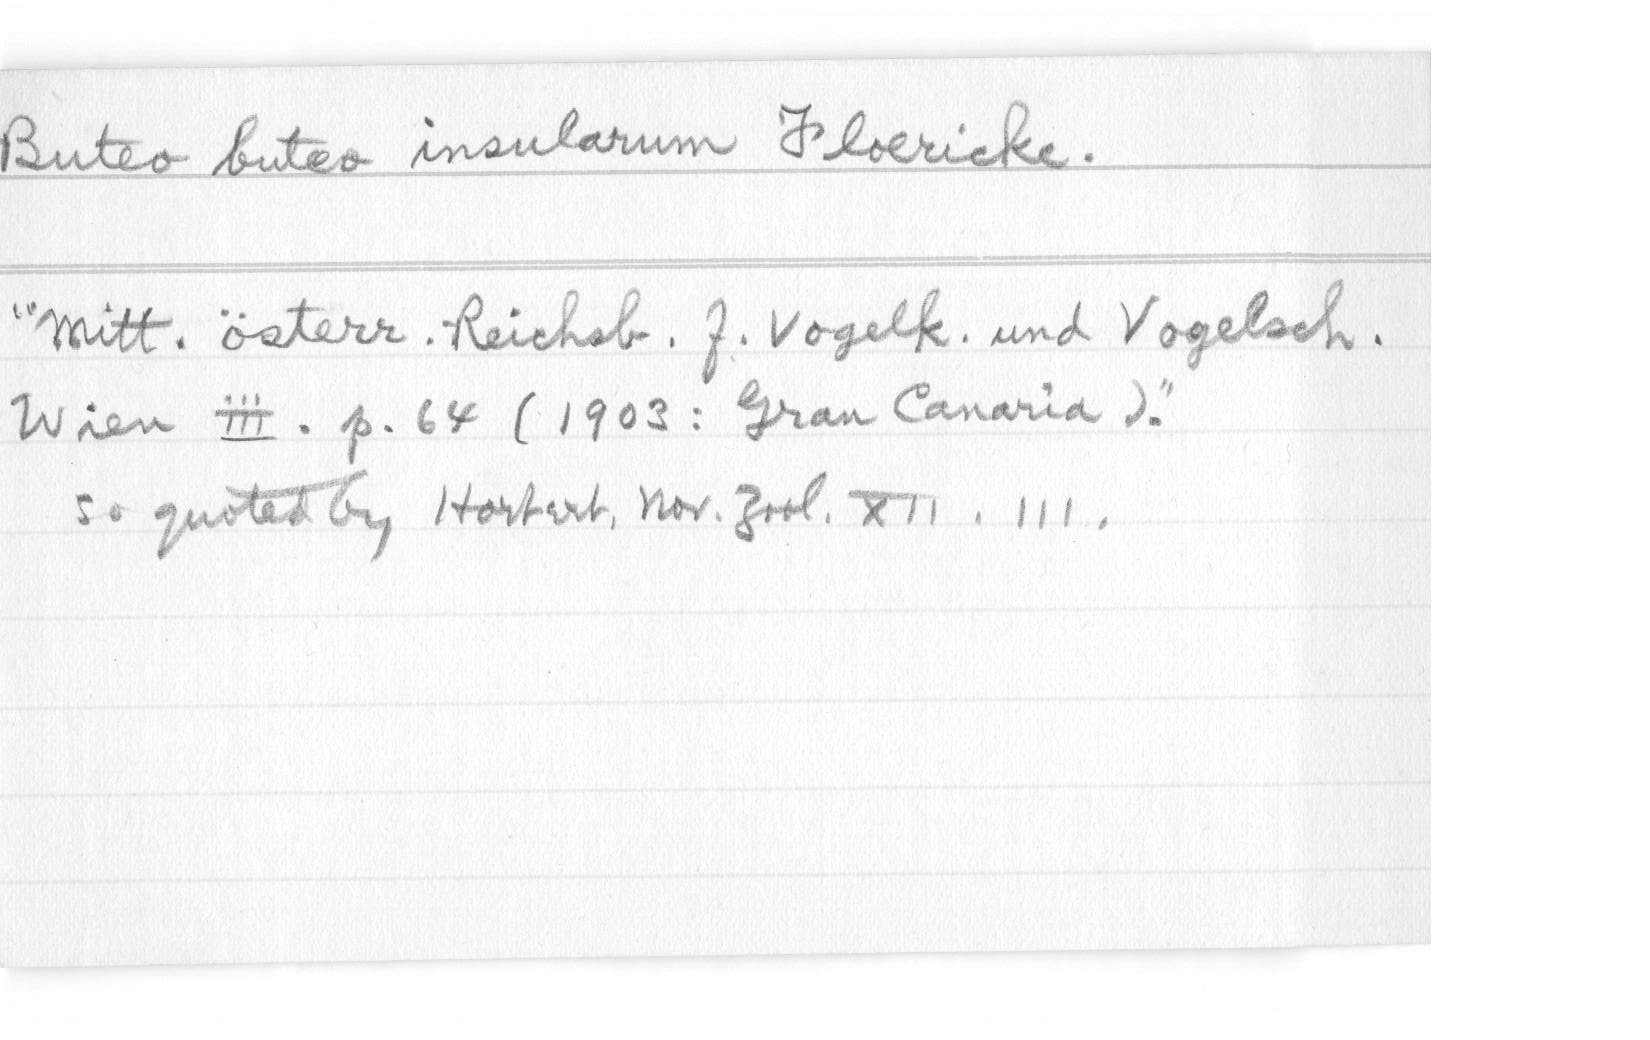 Buteo buteo insularum Floericke.
"Mitt. österr. Reichsb. f. Vogelk. und Vogelsch.
Wien III. p. 64 (1903: Gran Canaria)."
so quoted by Hartert, Nov. Zool. XII. 111.